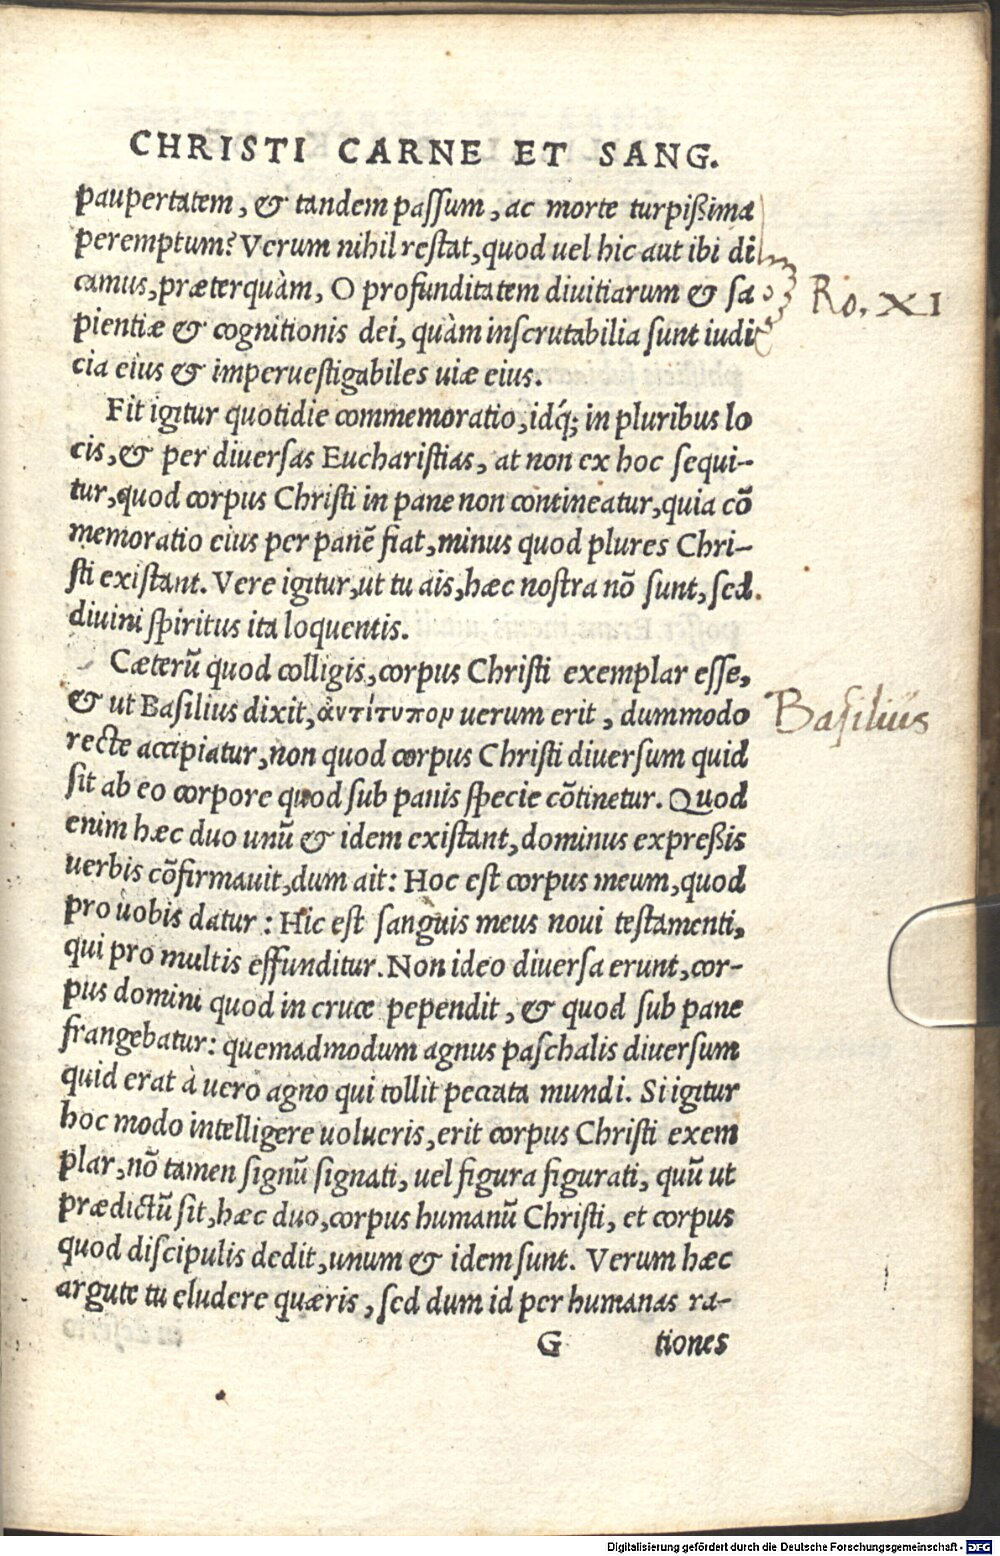 CHRISTI CARNE ET SANG.
paupertatem, & tandem paſſum, ac morte turpißima
peremptum? Verum nihil reſtat, quod uel hic aut ibi di
camus, præterquàm, O profunditatem diuitiarum & ſa
Ro. XI
pientiæ & cognitionis dei, quàm inſcrutabilia ſunt iudi
cia eius & imperueſtigabiles uiæ eius.
Fit igitur quotidie commemoratio, idq́; in pluribus lo
cis, & per diuerſas Euchariſtias, at non ex hoc ſequi-
tur, quod corpus Chriſti in pane non contineatur, quia cō
memoratio eius per panē fiat, minus quod plures Chri-
ſti exiſtant. Vere igitur, ut tu ais, hæc noſtra nō ſunt, ſed
diuini ſpiritus ita loquentis.
Cæterū quod colligis, corpus Chriſti exemplar eſſe,
& ut Baſilius dixit, ἀντίτυπον uerum erit, dummodo
Baſilius
recte accipiatur, non quod corpus Chriſti diuerſum quid
ſit ab eo corpore quod ſub panis ſpecie cōtinetur. Quod
enim hæc duo unū & idem exiſtant, dominus expreßis
uerbis cōfirmauit, dum ait: Hoc eſt corpus meum, quod
pro uobis datur: Hic eſt ſanguis meus noui teſtamenti,
qui pro multis effunditur. Non ideo diuerſa erunt, cor-
pus domini quod in cruce pependit, & quod ſub pane
frangebatur: quemadmodum agnus paſchalis diuerſum
quid erat à uero agno qui tollit peccata mundi. Si igitur
hoc modo intelligere uolueris, erit corpus Chriſti exem
plar, nō tamen ſignū ſignati, uel figura figurati, quū ut
prædictū ſit, hæc duo, corpus humanū Chriſti, et corpus
quod diſcipulis dedit, unum & idem ſunt. Verum hæc
argute tu eludere quæris, ſed dum id per humanas ra-
G tiones
Digitalisierung gefördert durch die Deutsche Forschungsgemeinschaft - DFG